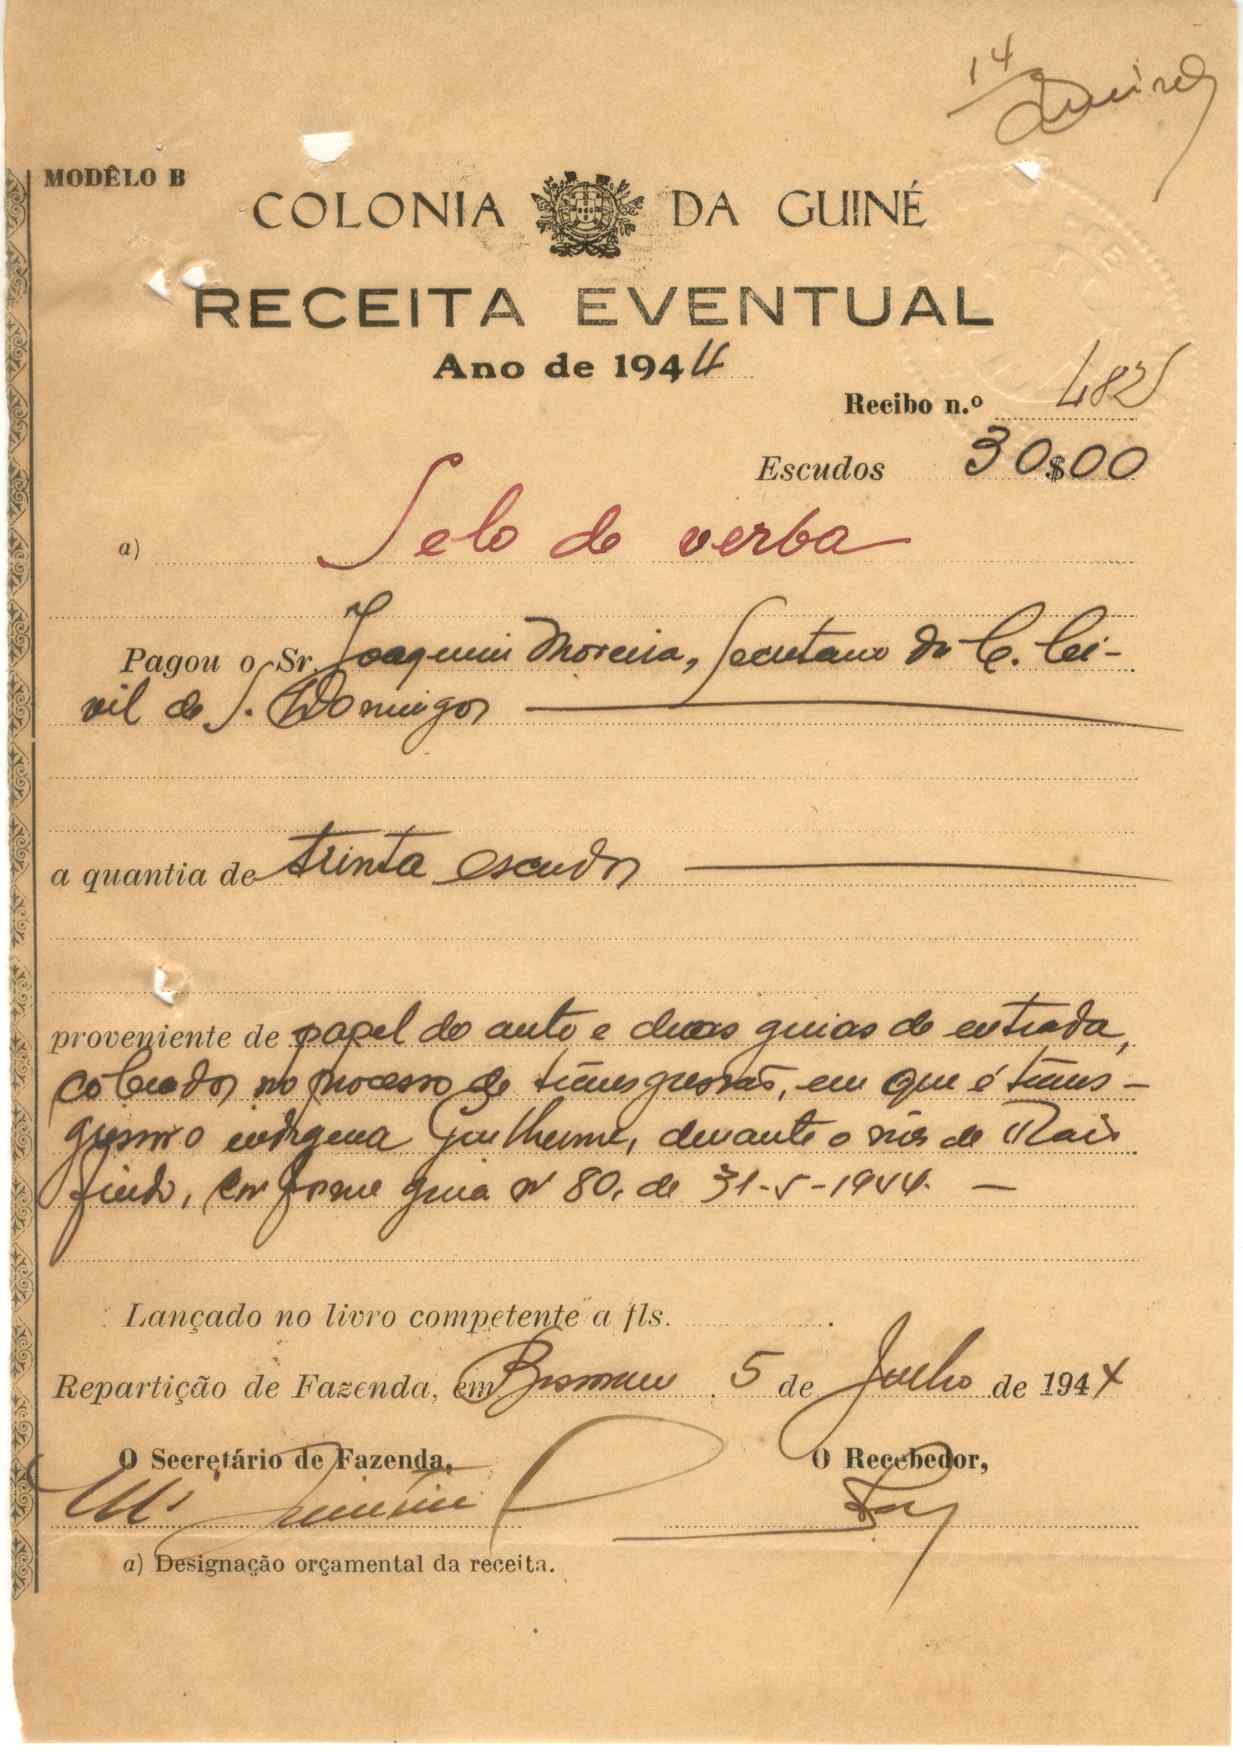 14
MODÊLO B
COLONIA DA GUINÉ
RECEITA EVENTUAL
Ano de 1944
Recibo n.º 482
Escudos 30$00
a) Selo de verba
Pagou o Sr. Joaquim Moreira, Secretario da C. Ci-
vil de S. Domingos
a quantia de trinta escudos
proveniente de papel do auto e duas guias de entrada,
cobrados no processo de transgressão, em que é trans-
gressor o indigena Guilherme, durante o mês de Maio
findo, conforme guia nº 80, de 31-5-1944. —
Lançado no livro competente a fls.
Repartição de Fazenda, em 5 de Julho de 1944
O Secretário de Fazenda,
O Recebedor,
a) Designação orçamental da receita.